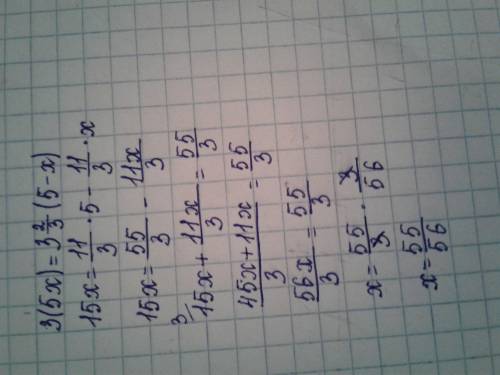 3(5x)=3 2/3 (5-x)
15x= 11/3 · 5 - 11/3 · x
15x= 55/3 - 11x/3
3/ 15x+ 11x/3 = 55/3
45x+11x/3 = 55/3
56x/3 = 55/3
x= 55/3 · 3/56
x= 55/56